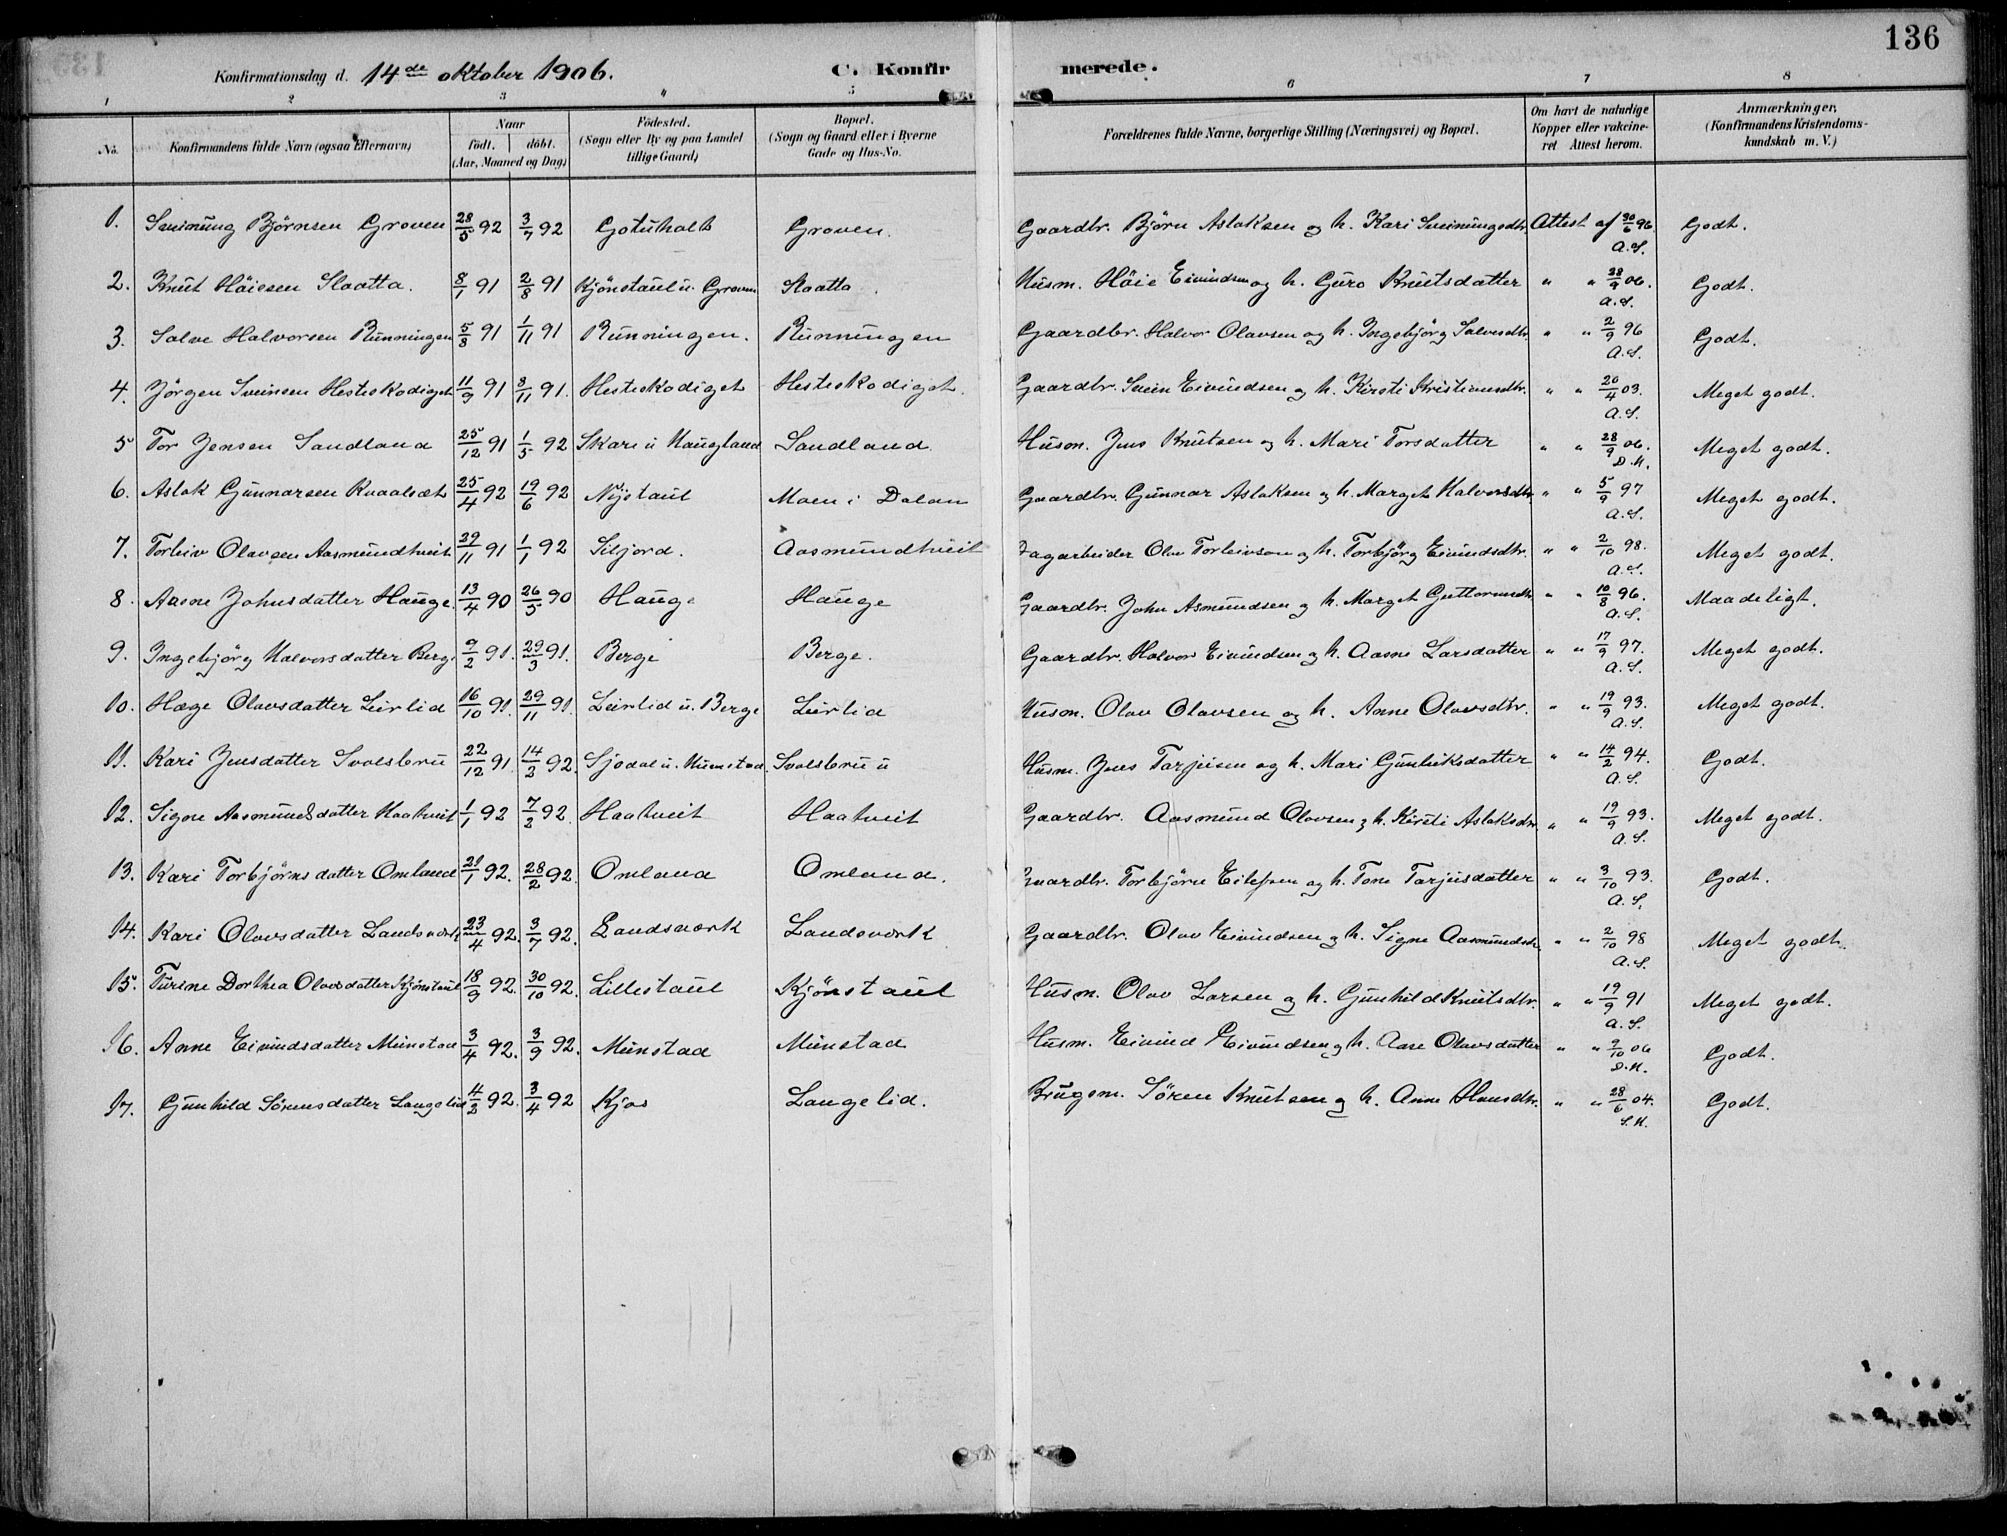 136
Konfirmationsdag d. 14de oktober 1906. C. Konfirmerede.
1 2 3 4 5 6 7 8
No. Konfirmandens fulde Navn (ogsaa Efternavn) Naar født. døbt. (Aar, Maaned og Dag) Fødested. (Sogn eller By og paa Landet tillige Gaard) Bopæl. (Sogn og Gaard eller i Byerne Gade og Hus-No. Forældrenes fulde Navne, borgerlige Stilling (Næringsvei) og Bopæl. Om havt de naturlige Kopper eller vakcineret Attest herom. Anmærkninger, (Konfirmandens Kristendomskundskab m. V.)
1. Sveinung Bjørnsen Groven 28/5 92 3/7 92 Gotuholt Groven. Gaardbr. Bjørn Aslaksen og h. Kari Sveinungsdtr. Attest af 30/6 96. A.S. Godt.
2. Knut Høiesen Slaatta. 8/1 91 2/8 91 Kjønstaul u. Groven Slaatta. Husm. Høie Eivindsen og h. Guro Knutsdatter " " 28/9 06. A.S. Godt.
3. Salve Halvorsen Runningen 5/8 91 1/11 91 Runningen. Runningen Gaardbr. Halvor Olavsen og h. Ingebjørg Salvesdtr. " " 2/9 96 A.S. Godt.
4. Jørgen Sveinsen Hesteskodiget 11/9 91 3/11 91. Hesteskodiget Hesteskodiget. Gaardbr. Svein Eivindsen og h. Kirsti Kristiansdtr. " " 20/4 03. A.S. Meget godt.
5 Tor Jensen Sandland 25/12 91 1/5 92 Skare u Haugland Sandland. Husm. Jens Knutsen og h. Mari Torsdatter " " 28/9 06. D.H. Meget godt.
6. Aslak Gunnarsen Kvaalsæt 25/4 92 19/6 92 Nystaul Moen i Dalan Gaardbr. Gunnar Aslaksen og h. Marget Halvorsdtr. " " 5/9 97 A.S. Meget godt.
7. Torleiv Olavsen Aasmundtveit 29/11 91 1/1 92 Siljord. Aasmundtveit Dagarbeider Olav Torleivson og h. Torbjørg Eivindsdtr. " " 2/10 98. A.S. Meget godt.
8. Aasne Johnsdatter Hauge. 13/4 90 26/5 90 Hauge Hauge Gaardbr. John Asmundsen og h. Marget Guttormsdtr " " 10/8 96. A.S. Maadeligt.
9. Ingebjörg Halvorsdatter Berge 9/2 91. 29/3 91. Berge Berge. Gaardbr. Halvor Eivindsen og h. Aasne Larsdatter " " 17/9 97. A.S. Meget godt.
10. Hæge Olavsdatter Leirlid 16/10 91. 29/11 91. Leirlid u. Berge Leirlid Husm. Olav Olavsen og h. Anne Olavsdtr. " " 19/9 93. A.S. Meget godt.
11. Kari Jensdatter Svolsbru 22/12 91. 14/2 92. Sjødal u. Munstad. Svolsbru u Husm. Jens Tarjeisen og h. Mari Gunleiksdatter " " 14/2 94. A.S. Godt.
12. Signe Aasmundsdatter Haatveit 1/1 92 7/2 92. Haatveit Haatveit Gaardbr. Aasmund Olavsen og h. Kirsti Aslaksdtr. " " 19/9 93. A.S. Meget godt.
13. Kari Torbjørnsdatter Omland 21/1 92. 28/2 92. Omland Omland. Gaardbr. Torbjørn Eilefsen og h. Tone Tarjeisdatter " " 3/10 93. A.S. Godt.
14. Kari Olavsdatter Landsværk 23/4 92. 3/7 92. Landsværk Landsværk Gaardbr. Olav Eivindsen og h. Signe Aasmundsdtr " " 2/10 98 A.S. Meget godt.
15. Turine Dorthea Olavsdatter Kjønstaul 18/9 92. 30/10 92. Lillestaul Kjønstaul Husm. Olav Larsen og h. Gunhild Knutsdtr. " " 19/9 91 A.S. Meget godt.
16. Anne Eivindsdatter Munstad 3/4 92. 3/9 92. Munstad Munstad Husm. Eivind Eivindsen og h. Aase Olavsdatter " " 9/10 06 D.H. Godt.
17. Gunhild Sørensdatter Langelid 4/2 92. 3/4 92 Kjos Langelid. Brugsm. Søren Knutsen og h. Anne Hansdtr. " " 28/6 04. S.H. Godt.